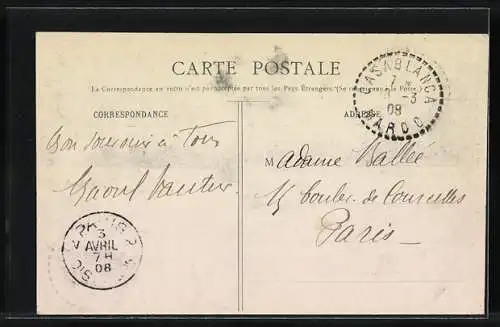 CARTE POSTALE
La Correspondance au recto n'est pas acceptée par tous les Pays Étrangers. (Se renseigner à la Poste.)
CORRESPONDANCE
ADRESSE
CASABLANCA
7 -3
08
MAROC
Bon souvenir à tous
Raoul
Madame Vallée
15 boulev. de Courcelles
Paris
PARIS
3
AVRIL
7H
08